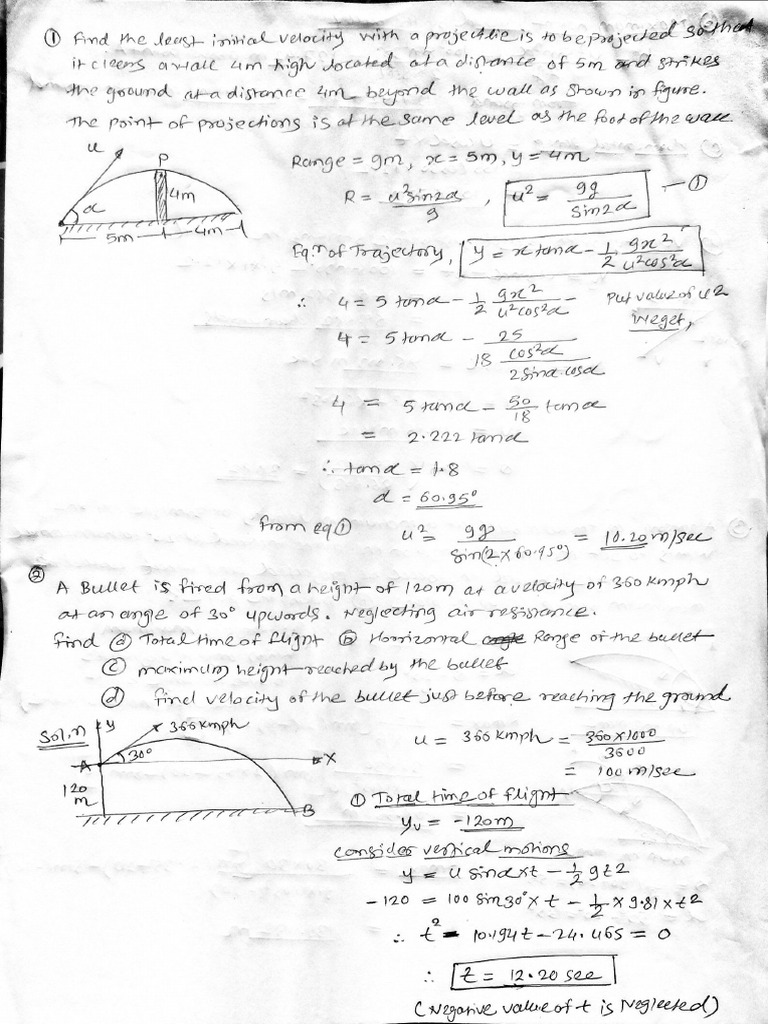 ① Find the least initial velocity with a projectlie is to be projected so that
it cleens a wall 4m high located at a distance of 5m and strikes
the ground at a distance 4m beyond the wall as shown in figure.
The point of projections is at the same level as the foot of the wall
u
P
α
4m
5m 4m
Range = 9m, x = 5m, y = 4m
R = u² sin2α / g , u² = 9g / Sin2α — ①
Eq.n of Trajectory, y = x tanα - 1/2 gx² / u²cos²α
∴ 4 = 5 tanα - 1/2 gx² / u²cos²α - Put value of u2
we get,
4 = 5 tanα - 25 / 18 cos²α / 2 Sinα.cosα
4 = 5 tanα - 50/18 tanα
= 2.222 tanα
∴ tanα = 1.8
α = 60.95°
from eq ① u² = 9g / Sin(2×60.95°) = 10.20 m/sec
② A Bullet is fired from a height of 120m at a velocity of 360 kmph
at an angle of 30° upwords. Neglecting air resistance.
find ⓐ Total time of flight ⓑ Horrizontal Range of the bullet
ⓒ maximum height reached by the bullet
ⓓ find velocity of the bullet just before reaching the ground
Sol.n
y
360 kmph
30°
A
X
120
m
B
u = 360 kmph = 360×1000 / 3600
= 100 m/sec
① Total time of flight
yᵥ = -120m
consider vertical motions
y = u sinα×t - 1/2 gt2
-120 = 100 Sin30°× t - 1/2 × 9.81 × t2
∴ t² - 10.194t - 24.465 = 0
∴ t = 12.20 sec
(Negative value of t is Neglected)